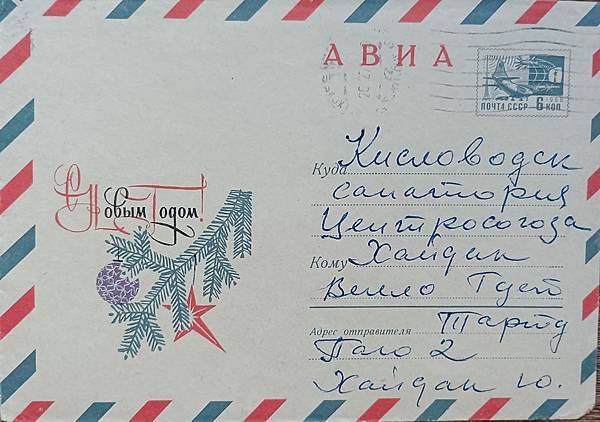 АВИА
ПОЧТА СССР 6 КОП.
1966
С Новым Годом!
Куда Кисловодск
санатория
Центросоюза
Кому Хайдак
Велло
Адрес отправителя Тарту
2
Хайдак Ю.